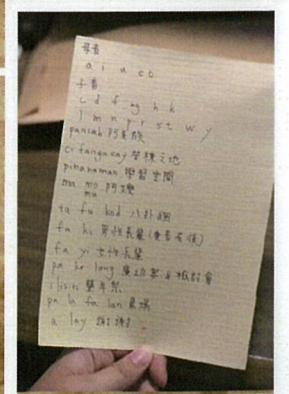 母音
a i u e o
子音
c d f ng h k
l m n p r s t w y
pancah 阿美族
ci fangacay
pinanaman 學習空間
ma mo 阿嬤
mu
ta fu kod 八卦網
fa ki 男性長輩
fa yi 女性長輩
pa ke lang
ilisin 豐年祭
pa la fa lan
a lay 謝謝